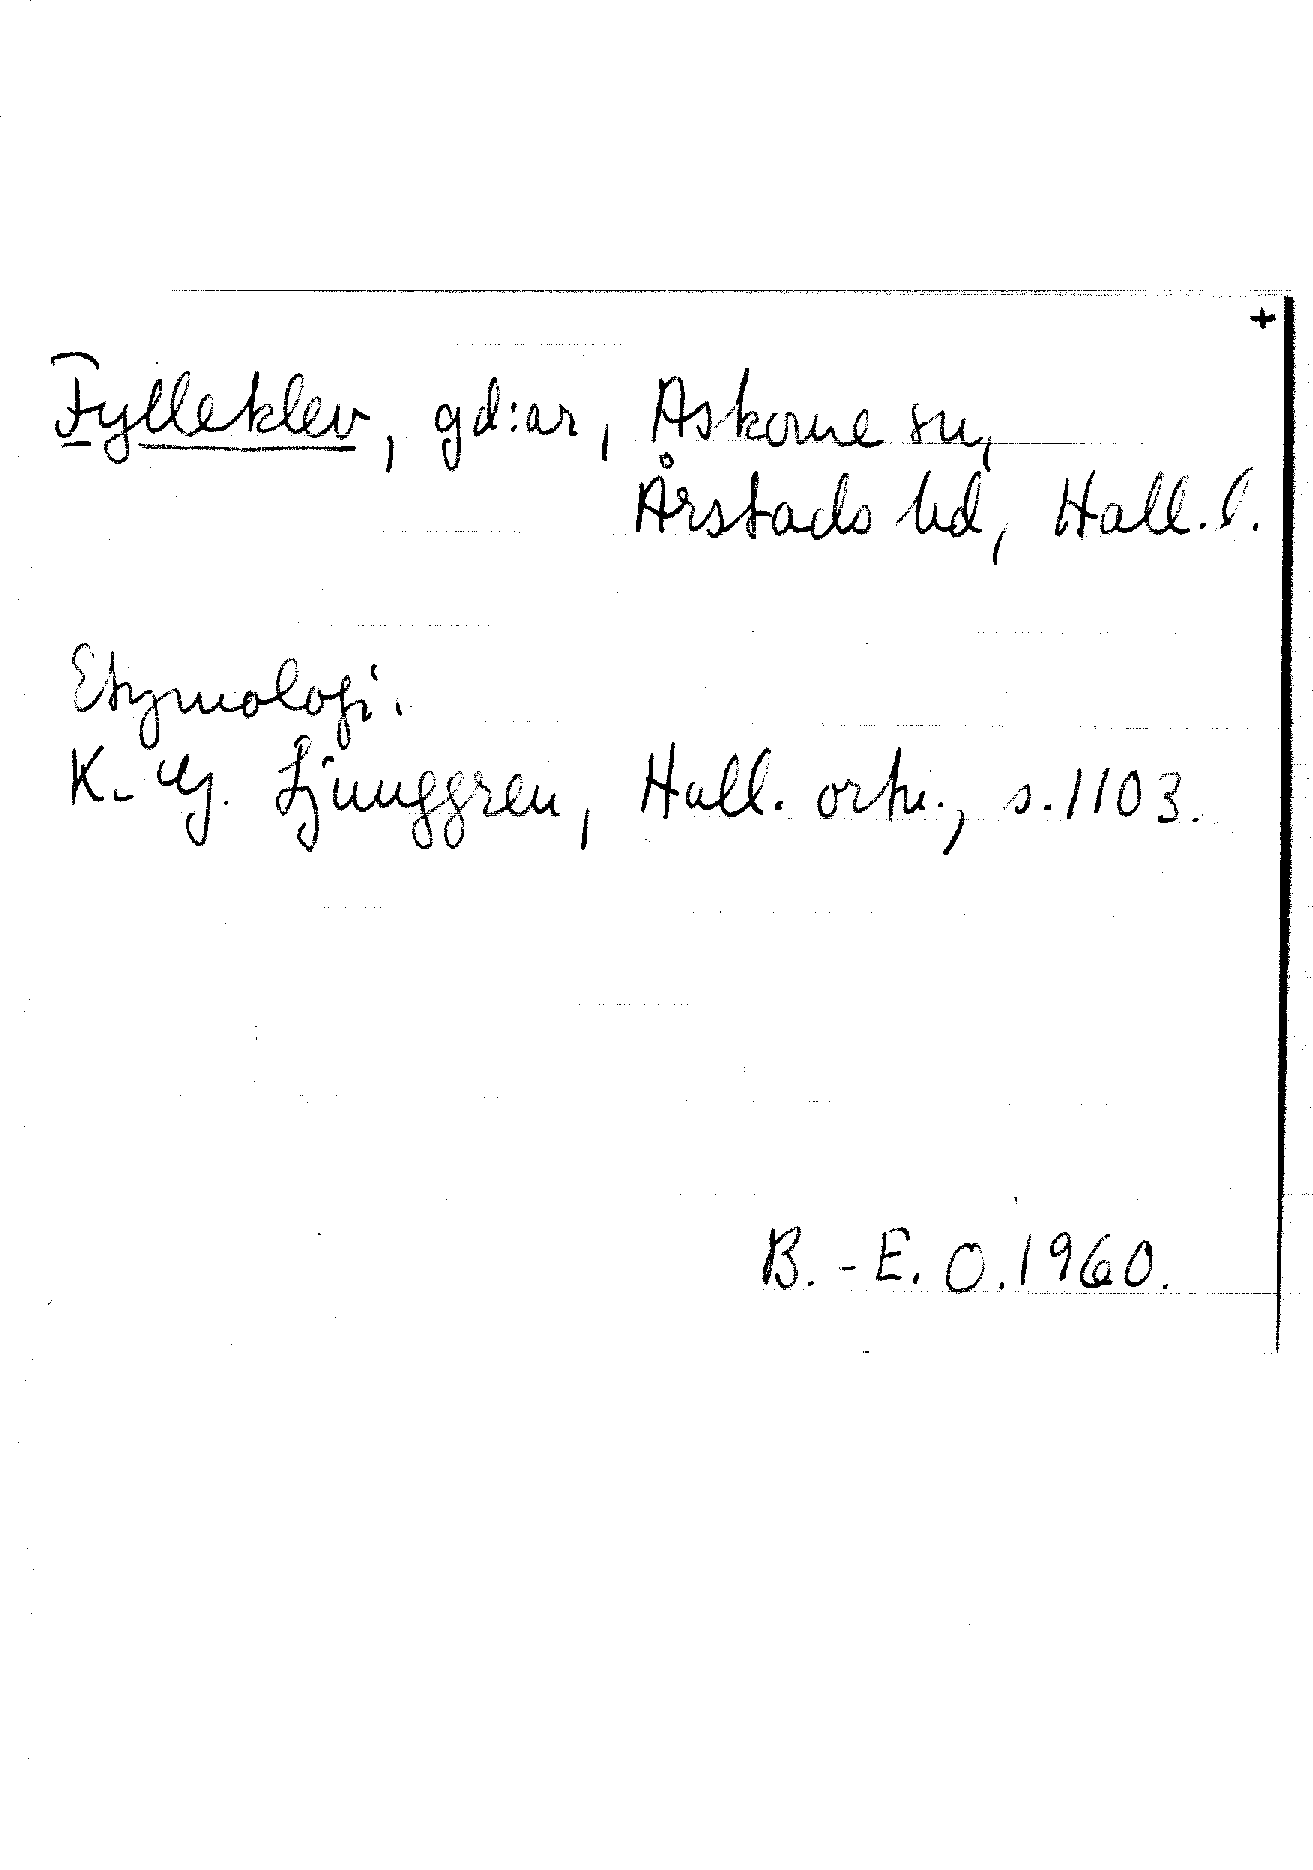 +
Fylleklev, gd:ar, Askome sn,
Årstads hd, Hall. l.
Etymologi.
K. G. Ljunggren, Hall. ortn., s. 1103.
B.-E. O. 1960.